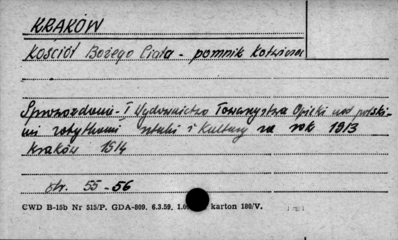 KRAKÓW
Kościół Bożego Ciała - pomnik
Sprawozdani- I Wydawnictwo Towarzystwa Opieki nad polski-
mi zabytkami sztuki i Kultury za rok 1913
Kraków 1914
str. 55-56
CWD B-15b Nr 515/P. GDA-809. 6.3.59. karton 180/V.